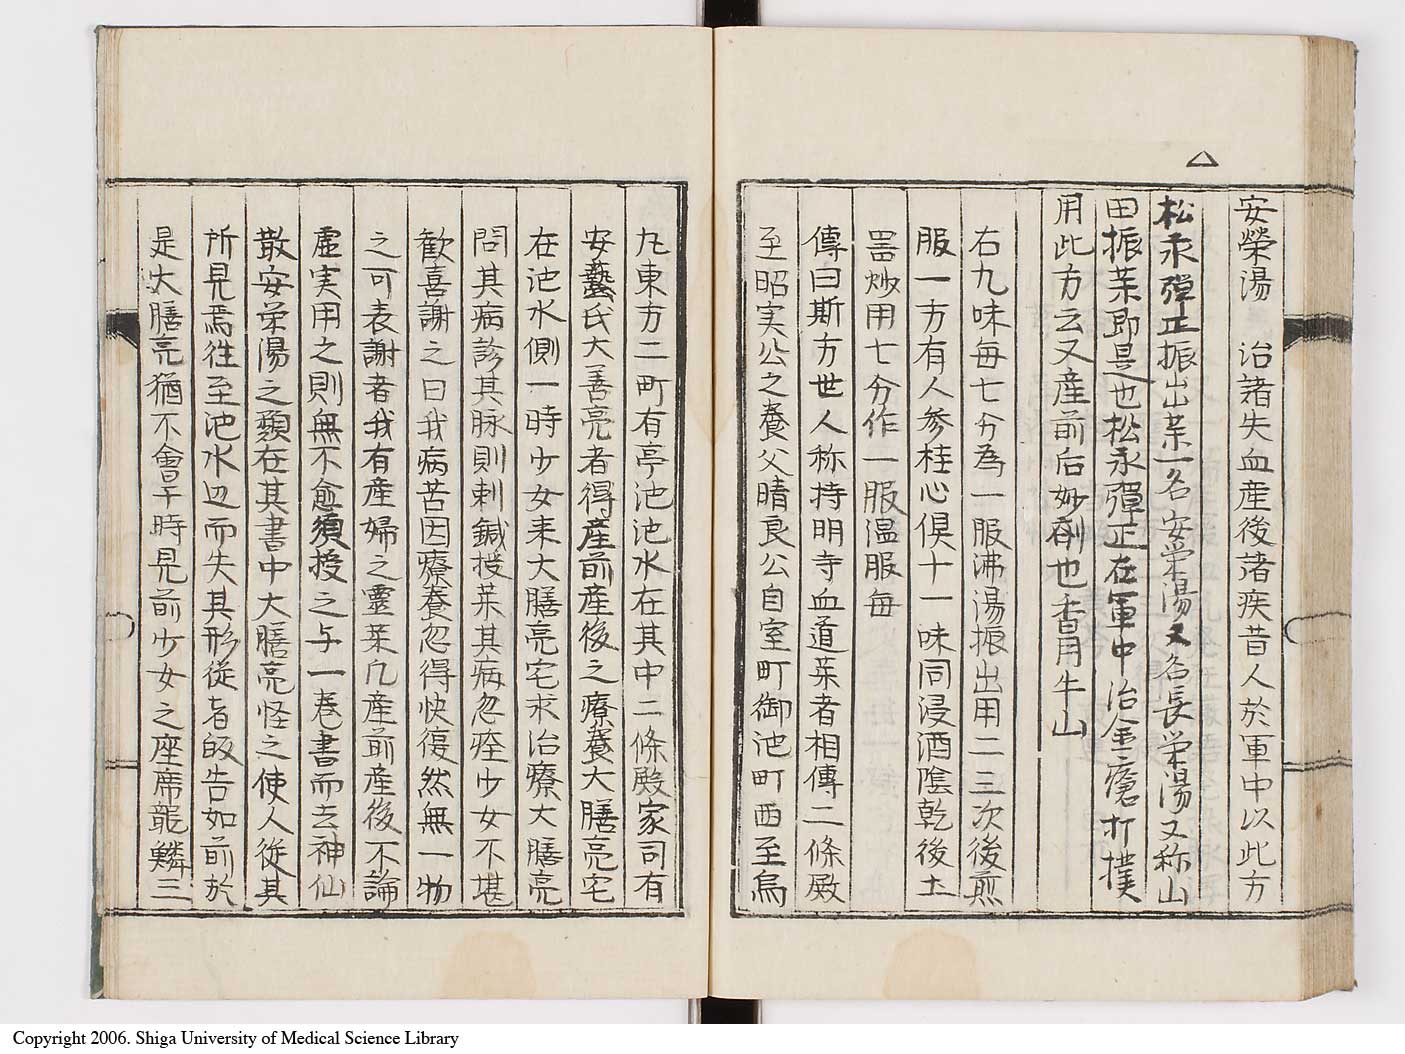 △
安榮湯　治諸失血産後諸疾昔人於軍中以此方
松永彈正振出薬一名安栄湯又名長栄湯又称山
田振薬即是也松永彈正在軍中治金瘡打撲
用此方云又産前后妙剤也香月牛山
右九味毎七分為一服沸湯振出用二三次後煎
服一方有人参桂心倶十一味同浸酒陰乾後土
器炒用七分作一服温服毎
傳曰斯方世人称持明寺血道薬者相傳二條殿
至昭実公之養父晴良公自室町御池町西至烏
丸東方二町有亭池池水在其中二條殿家司有
安藝氏大善亮者得産前産後之療養大膳亮宅
在池水側一時少女来大膳亮宅求治療大膳亮
問其病診其脉則刺鍼授薬其病忽痊少女不堪
歓喜謝之曰我病苦因療養忽得快復然無一物
之可表謝者我有産婦之霊薬凡産前産後不論
虚実用之則無不愈須授之与一巻書而去神仙
散安栄湯之類在其書中大膳亮怪之使人従其
所見焉往至池水辺而失其形従者皈告如前於
是大膳亮猶不會早時見前少女之座席龍鱗三
Copyright 2006. Shiga University of Medical Science Library